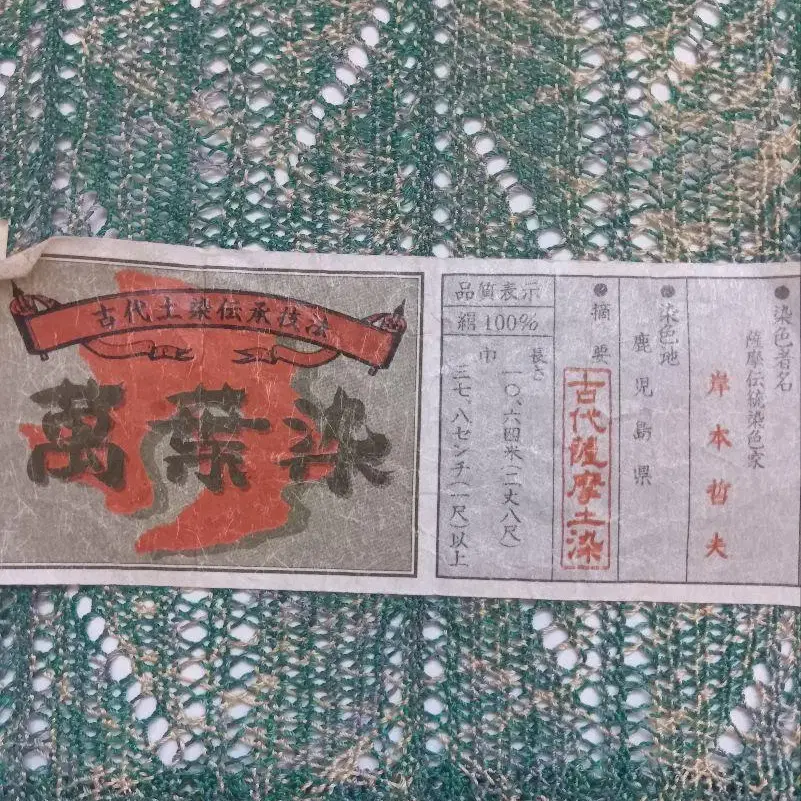 古代土染伝承技法
萬葉染
●染色者名
薩摩伝統染色家
岸本哲夫
●染色地
鹿児島県
●摘要
古代薩摩土染
品質表示
絹100%
長さ
一〇、六四米(二丈八尺)
巾
三七、八センチ(一尺)以上